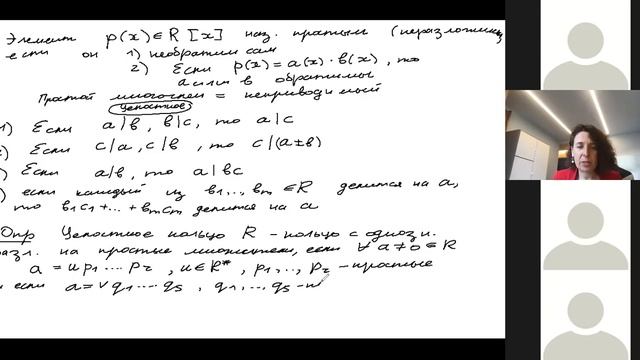 Элемент p(x) ∈ R[x] наз. простым (неразложим
если он 1) необратим сам
2) Если p(x) = a(x) · b(x), то
a или b обратимы
Простой многочлен = неприводимый
целостное
1) Если a|b, b|c, то a|c
) Если c|a, c|b, то c|(a±b)
) Если a|b, то a|bc
) если каждый из b1,..., bm ∈ R делится на a,
то b1c1+...+bmcm делится на a
Опр Целостное кольцо R - кольцо с однозн.
разл. на простые множители, если ∀ a≠0 ∈ R
a = u p1 .... pr, u ∈ R*, p1,..., pr - простые
и если a = v q1 .... qs, q1,... qs - п